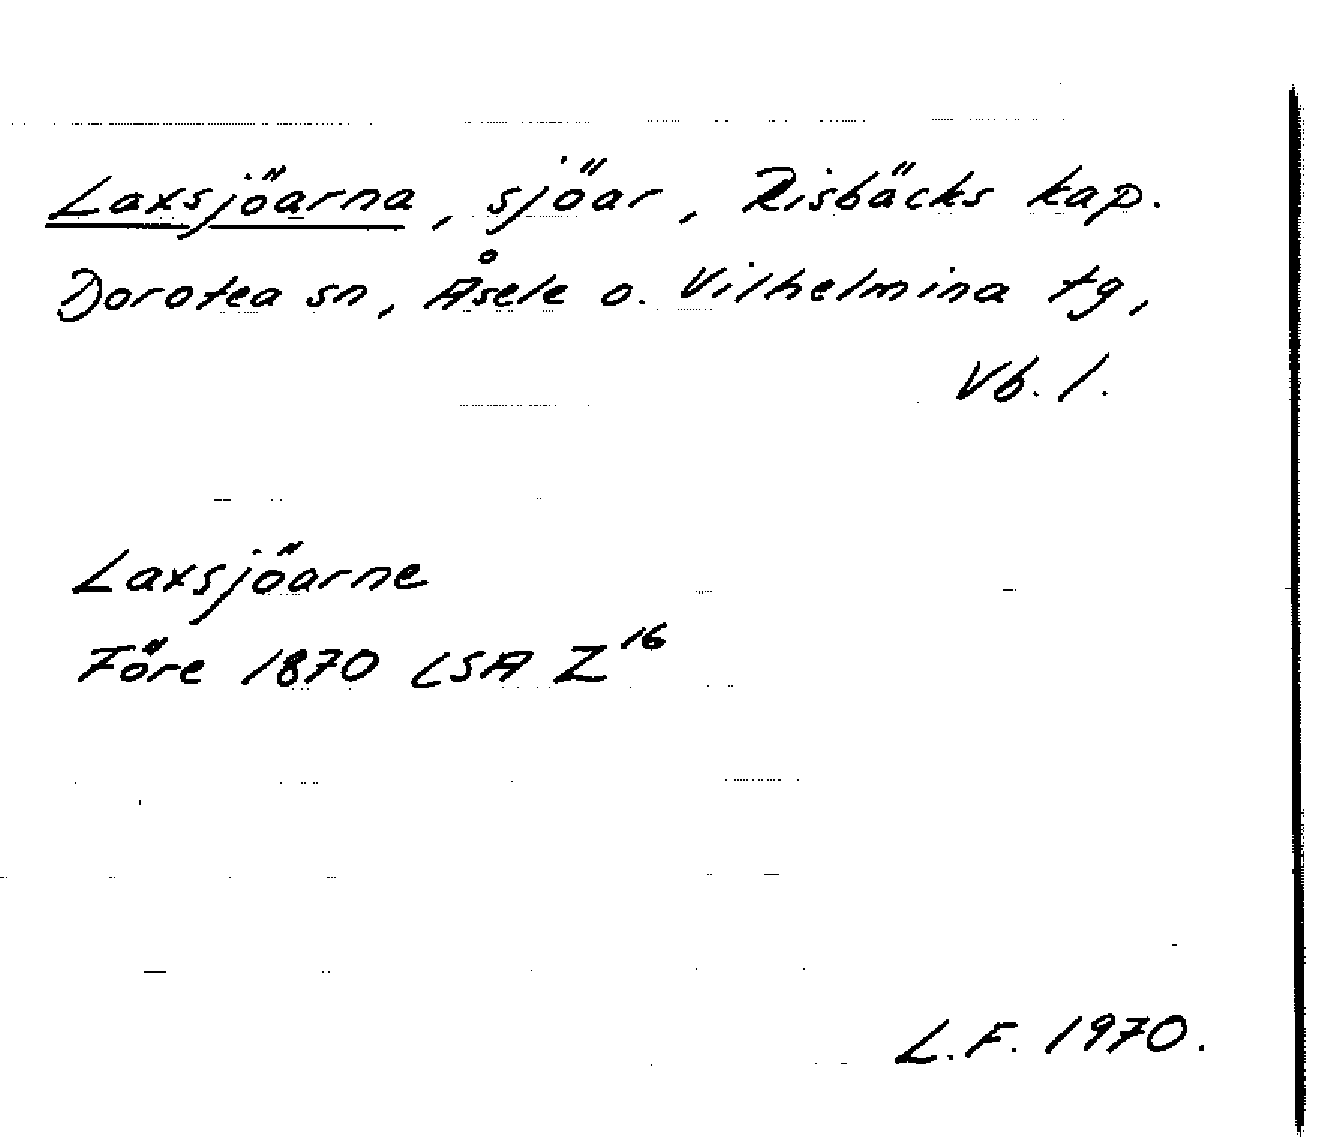 Laxsjöarna, sjöar, Risbäcks kap.
Dorotea sn, Åsele o. Vilhelmina tg,
Vb. l.
Laxsjöarne
Före 1870 LSA Z¹⁶
L.F. 1970.